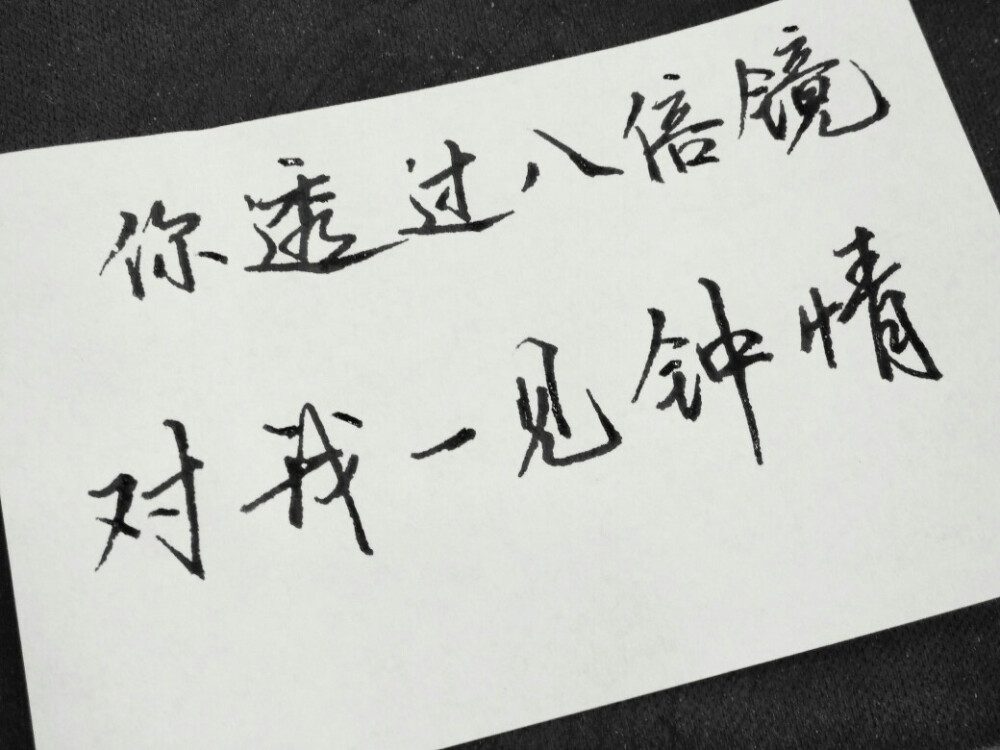 你透过八倍镜
对我一见钟情